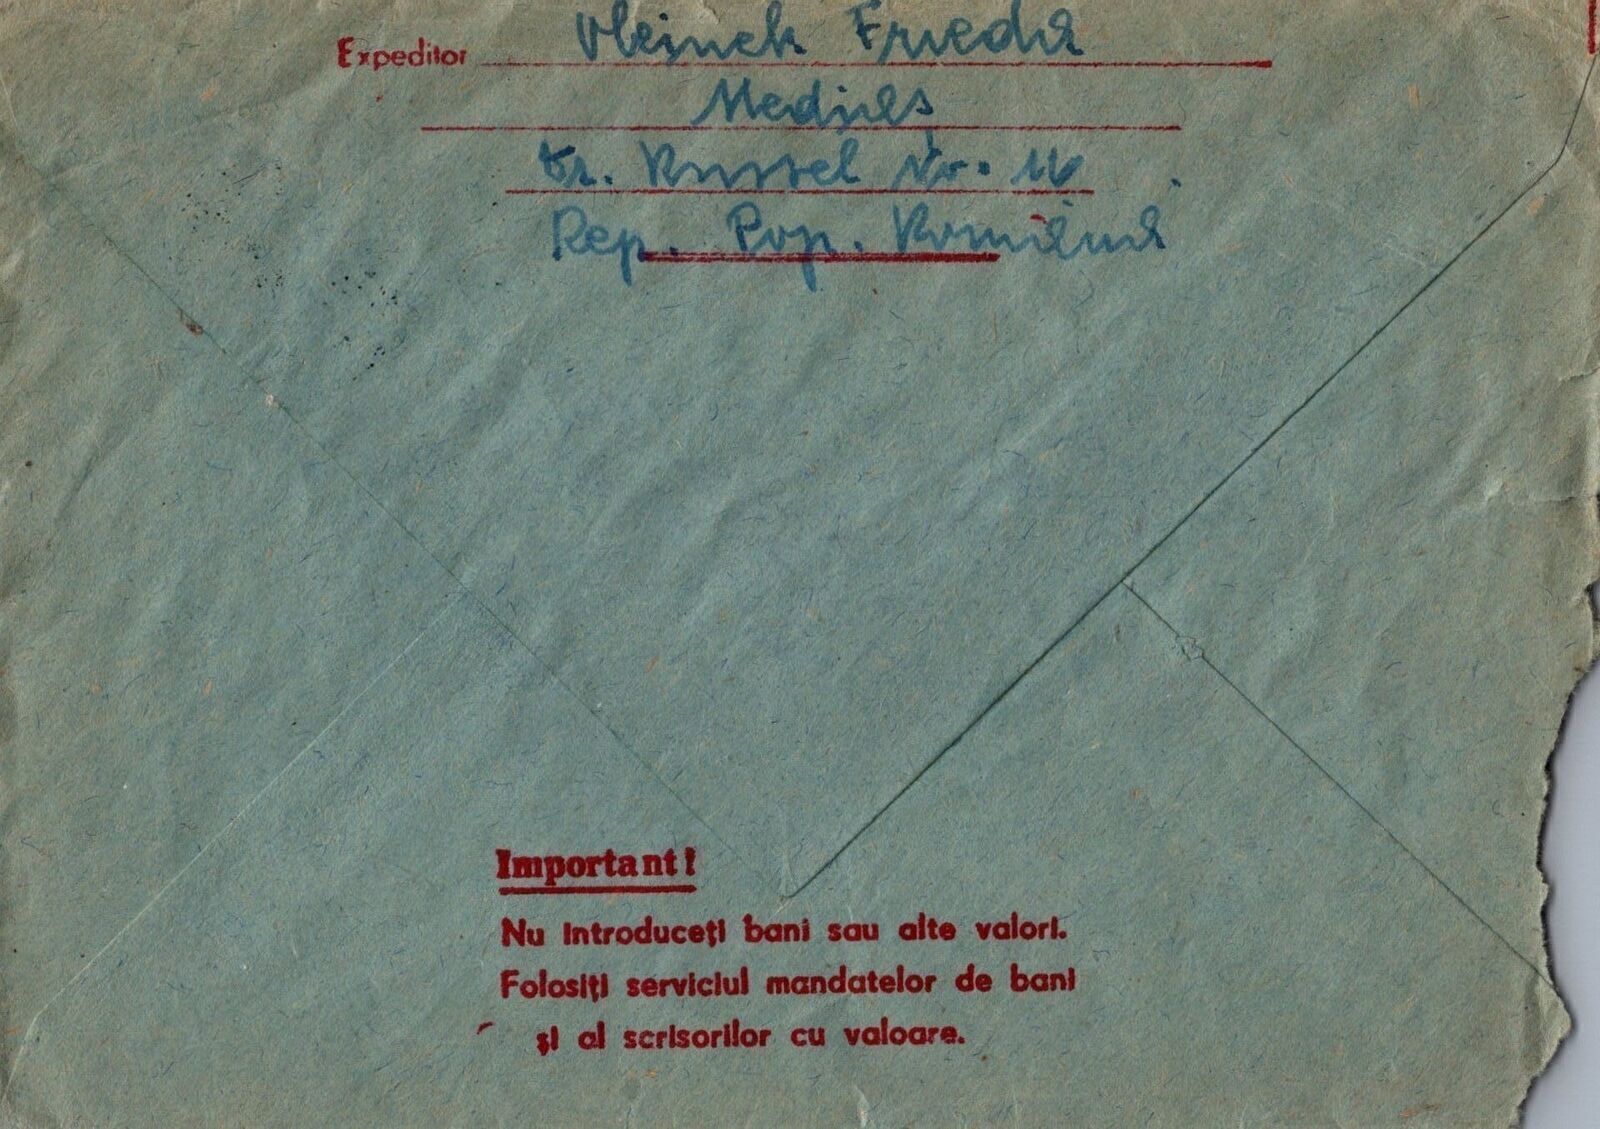 Expeditor Olejnek Frieda
Mediaș
Str. Nr. 16
Rep. Pop. Română
Important!
Nu introduceți bani sau alte valori.
Folosiți serviciul mandatelor de bani
și al scrisorilor cu valoare.